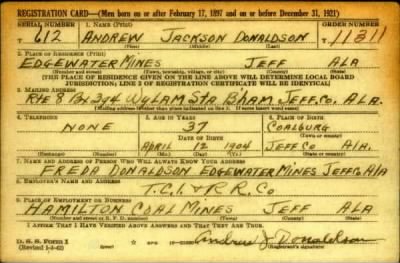 REGISTRATION CARD—(Men born on or after February 17, 1897 and on or before December 31, 1921)
SERIAL NUMBER 1. NAME (Print) ORDER NUMBER
612 ANDREW JACKSON DONALDSON 11311
(First) (Middle) (Last)
2. PLACE OF RESIDENCE (Print)
EDGEWATER MINES JEFF ALA
(Number and street) (Town, township, village, or city) (County) (State)
[THE PLACE OF RESIDENCE GIVEN ON THE LINE ABOVE WILL DETERMINE LOCAL BOARD
JURISDICTION; LINE 2 OF REGISTRATION CERTIFICATE WILL BE IDENTICAL]
3. MAILING ADDRESS
Rte 8 Bx 394 WYLAM STA B'HAM, JEFF. CO. ALA.
[Mailing address if other than place indicated on line 2. If same insert word same]
4. TELEPHONE 5. AGE IN YEARS 6. PLACE OF BIRTH
NONE 37 COALBURG
DATE OF BIRTH (Town or county)
APRIL 12 1904 JEFF CO ALA.
(Exchange) (Number) (Mo.) (Day) (Yr.) (State or country)
7. NAME AND ADDRESS OF PERSON WHO WILL ALWAYS KNOW YOUR ADDRESS
FREDA DONALDSON EDGEWATER MINES JEFF Co, ALA
8. EMPLOYER'S NAME AND ADDRESS
T. C. I. & R. R. Co
9. PLACE OF EMPLOYMENT OR BUSINESS
HAMILTON COAL MINES JEFF ALA
(Number and street or R. F. D. number) (Town) (County) (State)
I AFFIRM THAT I HAVE VERIFIED ABOVE ANSWERS AND THAT THEY ARE TRUE.
D. S. S. FORM 1
(Revised 1-1-42) Andrew J Donaldson
(Registrant's signature)